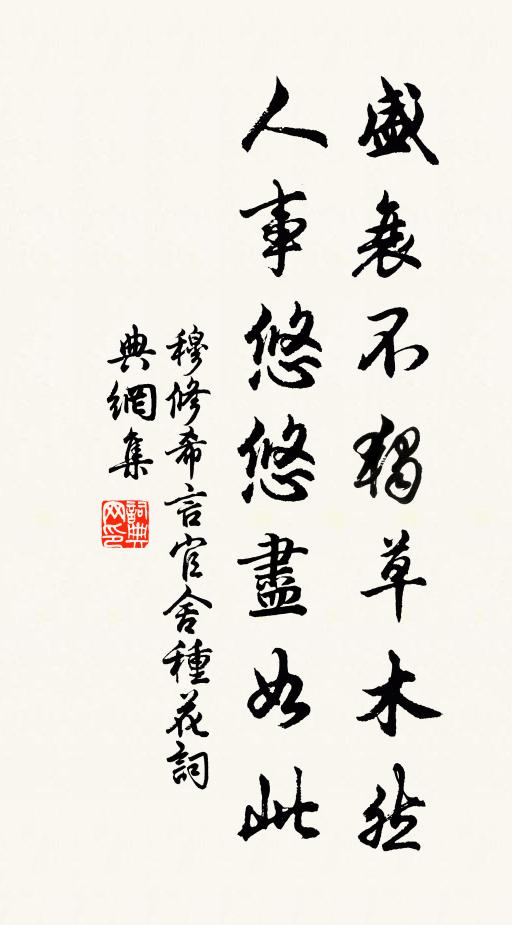 盛衰不獨草木然
人事悠悠盡如此
穆修希言官舍種花詞
典網集
詞典网印